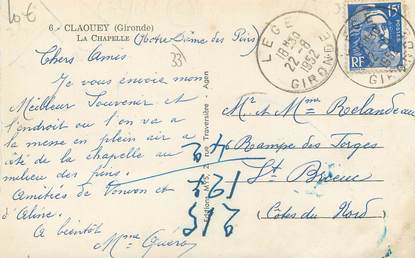 10€
6 - CLAOUEY (Gironde)
LA CHAPELLE (Notre Dame des Pins)
33)
Chers Amis
Je vous envoie mon
Meilleur Souvenir et
l'endroit ou l'on va a
la messe en plein air a
côté de la chapelle au
milieu des pins.
Amitiés de Vonvon et
d'Aline.
A bientôt
Mme
Editions MYS, rue Traversière - Agen
LEGE
18H30
22-8
1952
GIRONDE
15F
RF
Mr et Mme Relandeau
Rampe des Forges
St Brieuc
(Côtes du Nord)